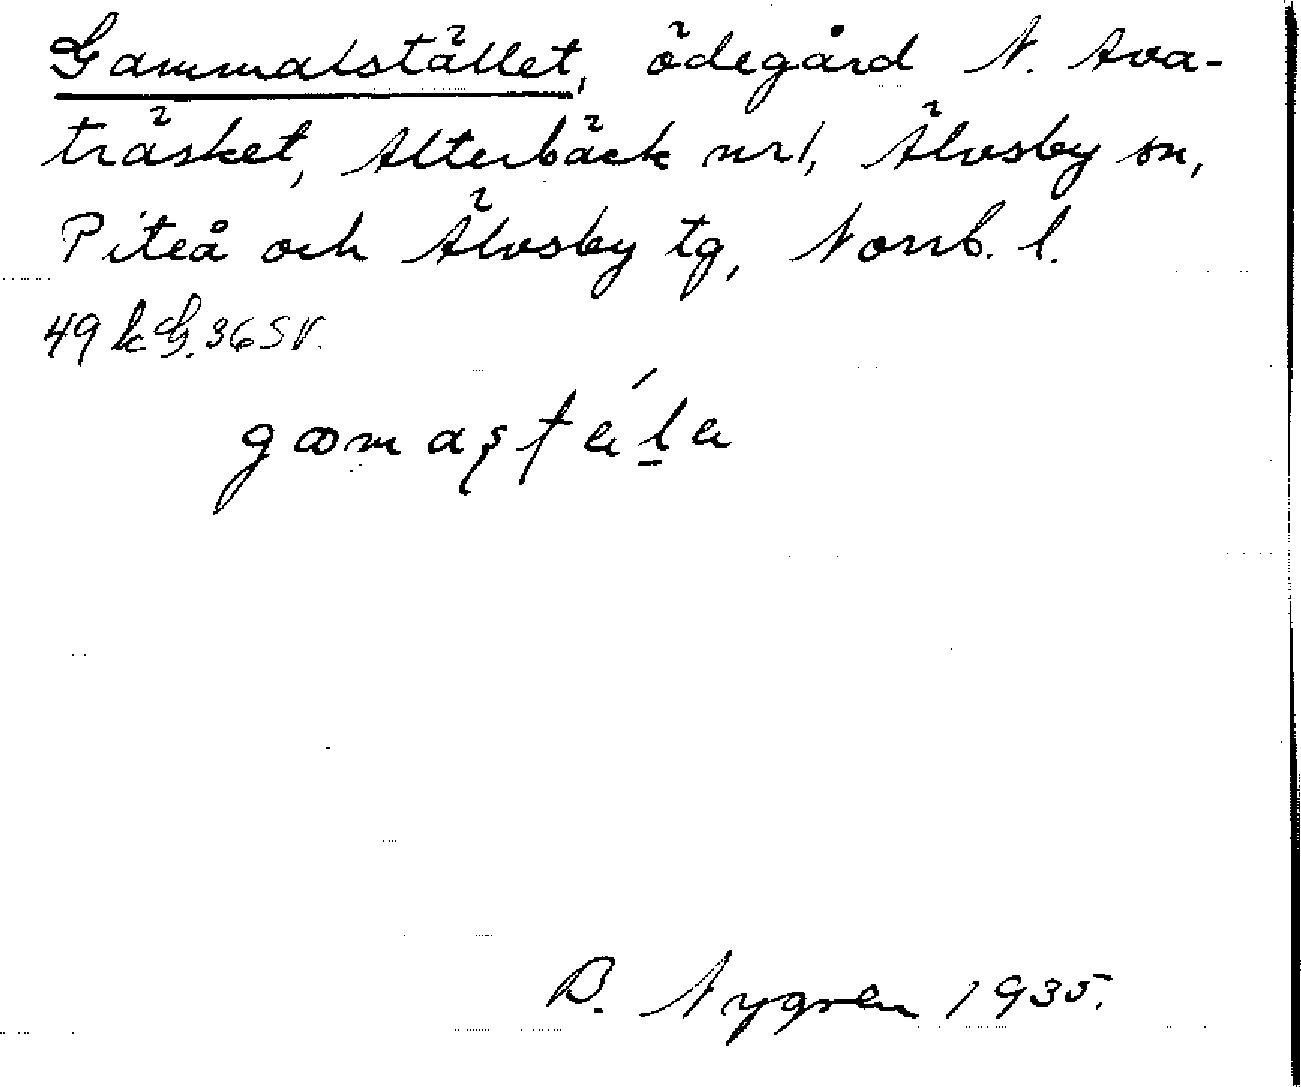 Gammalstället, ödegård N. Ava-
träsket, Alterbäck nr 1, Älvsby sn,
Piteå och Älvsby tg, Norrb. l.
49 k G. 36 SV.
B. Nygren 1935.